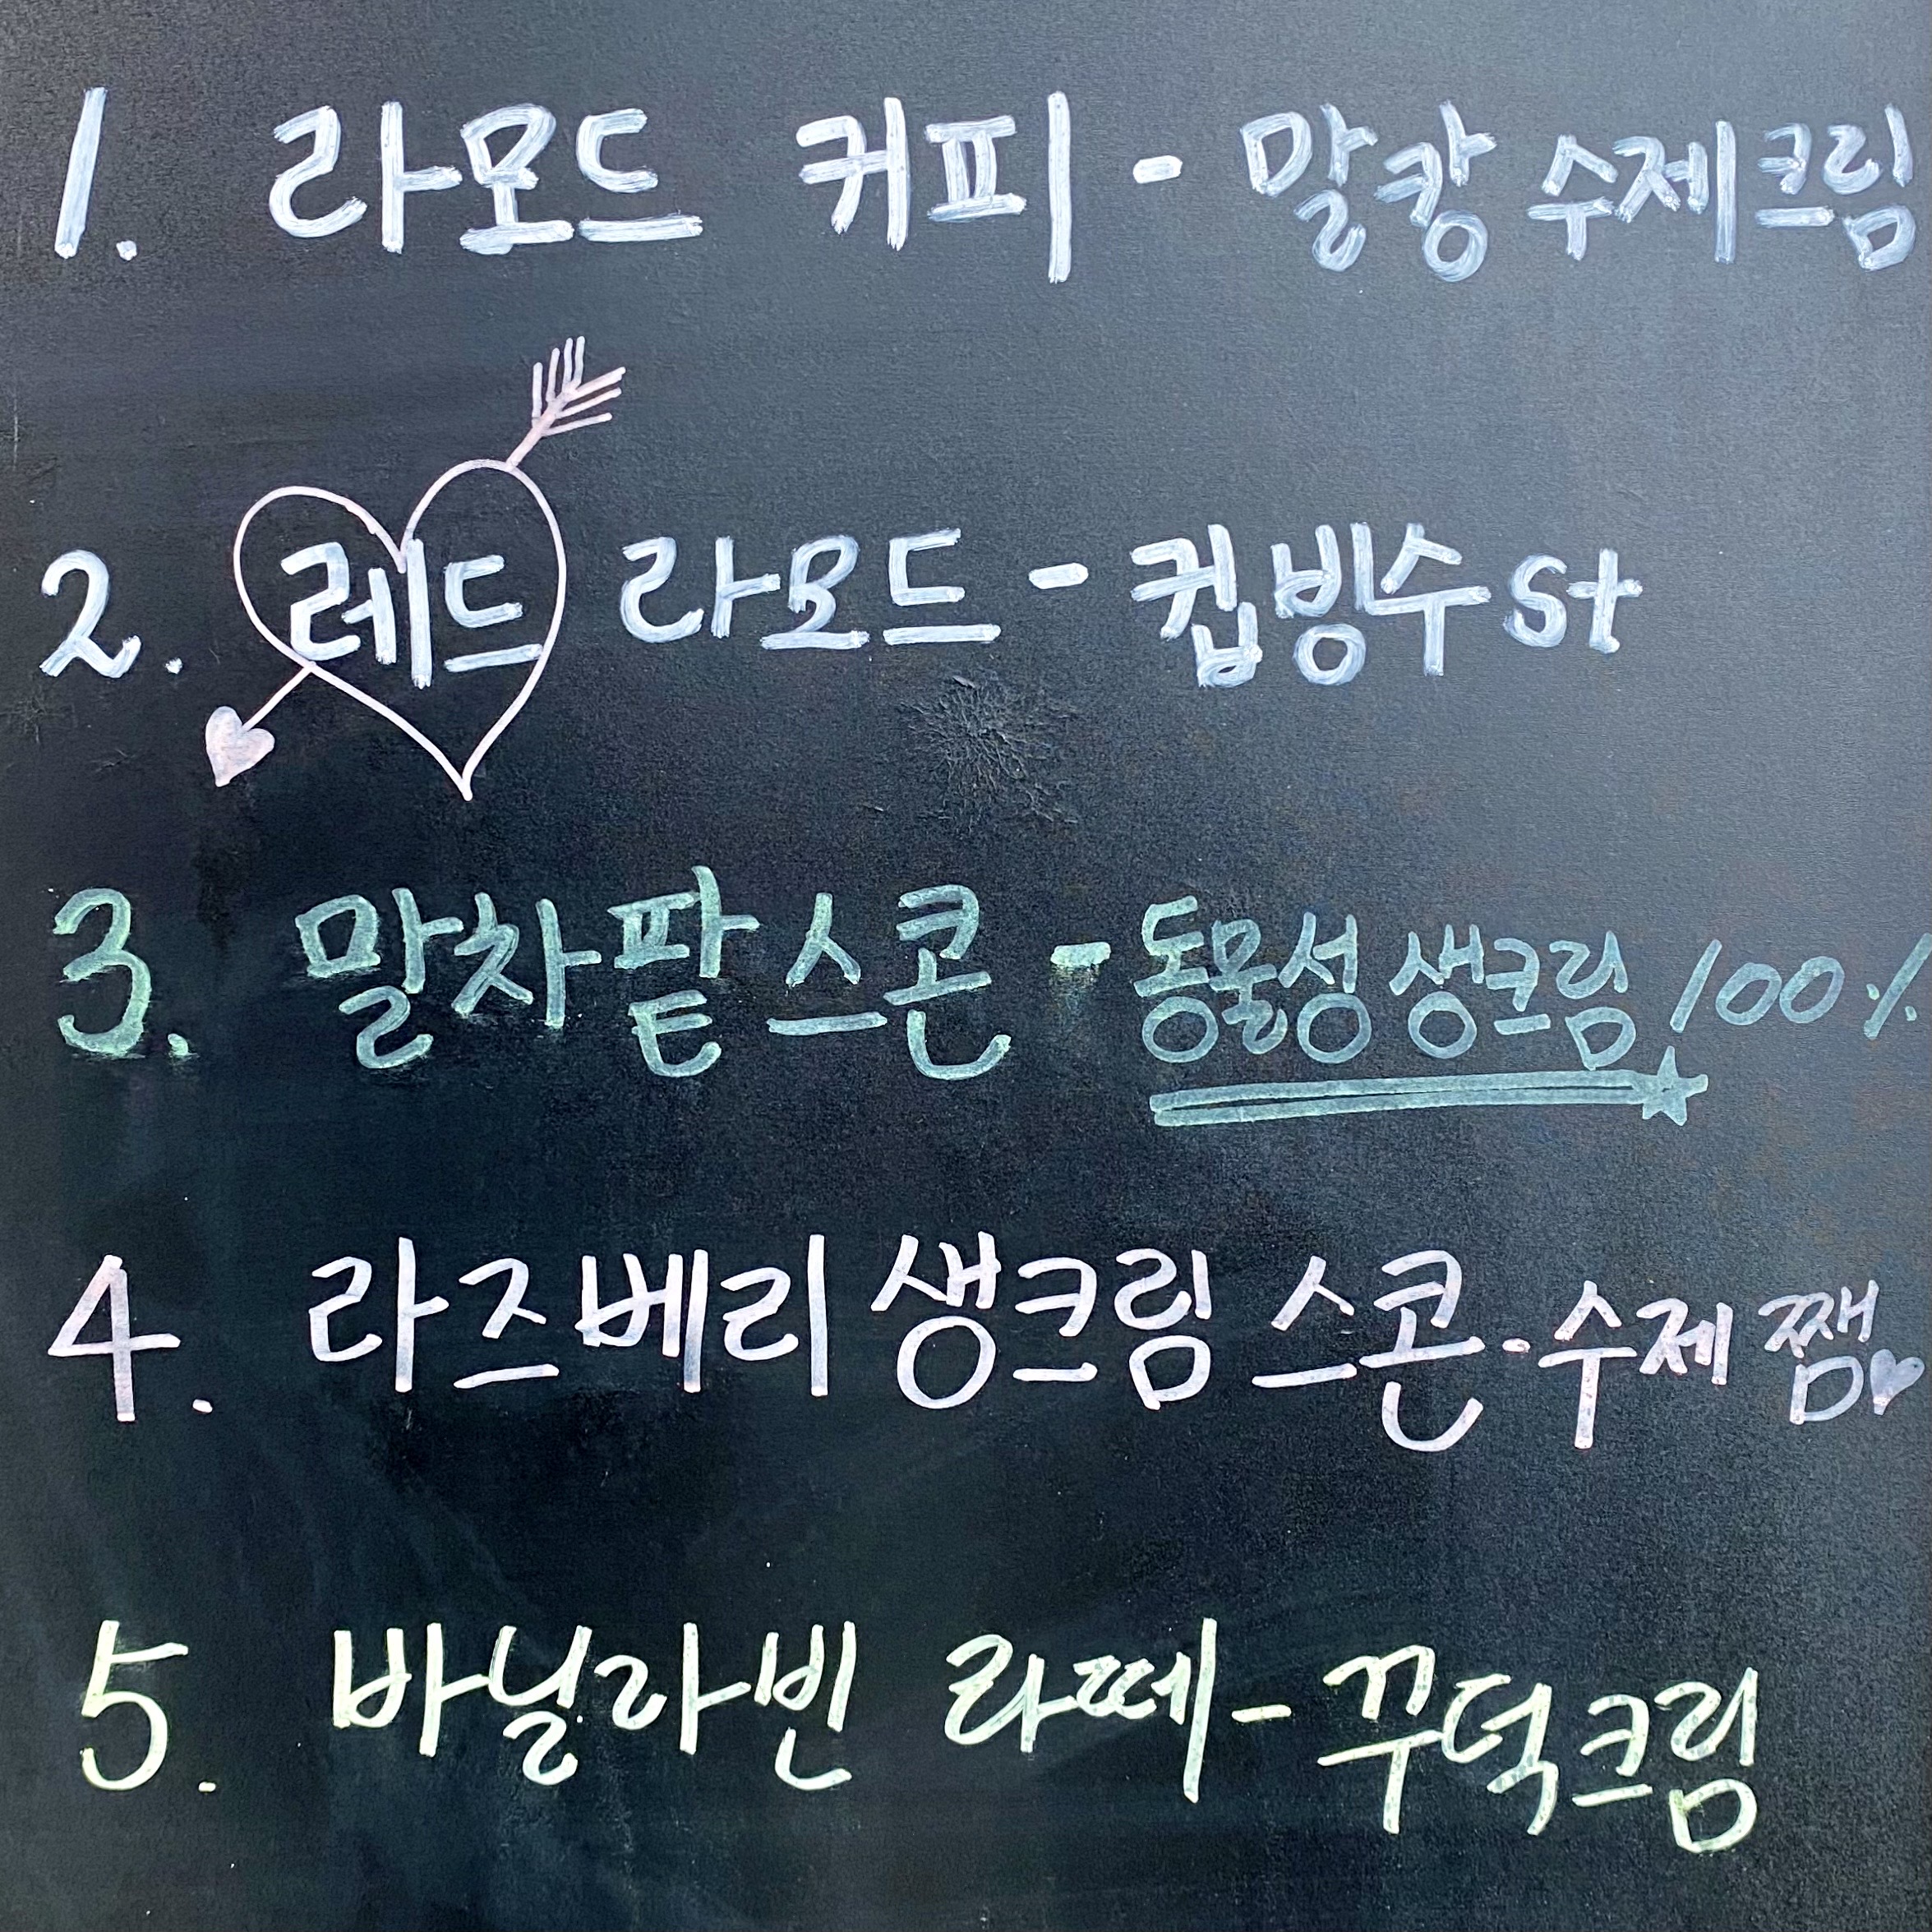 1. 라모드 커피 - 말캉 수제크림
2. 레드 라모드 - 컵빙수 st
3. 말차팥 스콘 - 동물성 생크림 100%
4. 라즈베리 생크림 스콘 - 수제 쨈♥
5. 바닐라빈 라떼 - 꾸덕크림